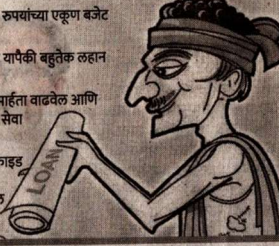 रुपयांच्या एकूण बजेट
यापैकी बहुतेक लहान
र्हता वाढवेल आणि
सेवा
LOAN